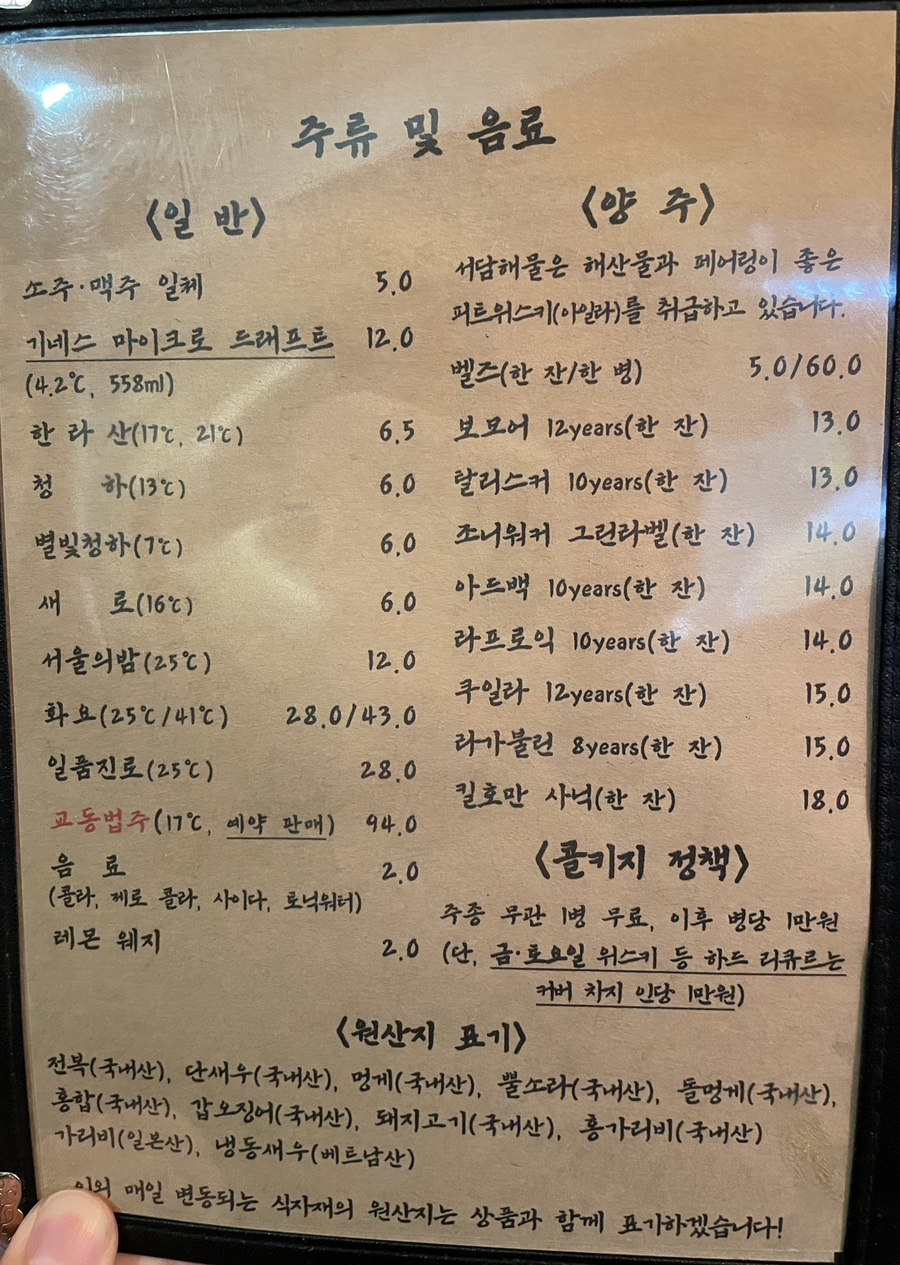 주류 및 음료
<일 반>
소주·맥주 일체 5.0
기네스 마이크로 드래프트 12.0
(4.2℃, 558ml)
한 라 산(17℃, 21℃) 6.5
청 하(13℃) 6.0
별빛청하(7℃) 6.0
새 로(16℃) 6.0
서울의밤(25℃) 12.0
화요(25℃/41℃) 28.0/43.0
일품진로(25℃) 28.0
교동법주(17℃, 예약 판매) 94.0
음 료 2.0
(콜라, 제로 콜라, 사이다, 토닉워터)
레몬 웨지 2.0
<양 주>
서담해물은 해산물과 페어링이 좋은
피트위스키(아일라)를 취급하고 있습니다.
벨즈(한 잔/한 병) 5.0/60.0
보모어 12years(한 잔) 13.0
탈리스커 10years(한 잔) 13.0
조니워커 그린라벨(한 잔) 14.0
아드백 10years(한 잔) 14.0
라프로익 10years(한 잔) 14.0
쿠일라 12years(한 잔) 15.0
라가불린 8years(한 잔) 15.0
킬호만 사닉(한 잔) 18.0
<콜키지 정책>
주종 무관 1병 무료, 이후 병당 1만원
(단, 금·토요일 위스키 등 하드 리큐르는
커버 차지 인당 1만원)
<원산지 표기>
전복(국내산), 단새우(국내산), 멍게(국내산), 뿔소라(국내산), 돌멍게(국내산),
홍합(국내산), 갑오징어(국내산), 돼지고기(국내산), 홍가리비(국내산)
가리비(일본산), 냉동새우(베트남산)
이외 매일 변동되는 식자재의 원산지는 상품과 함께 표기하겠습니다!